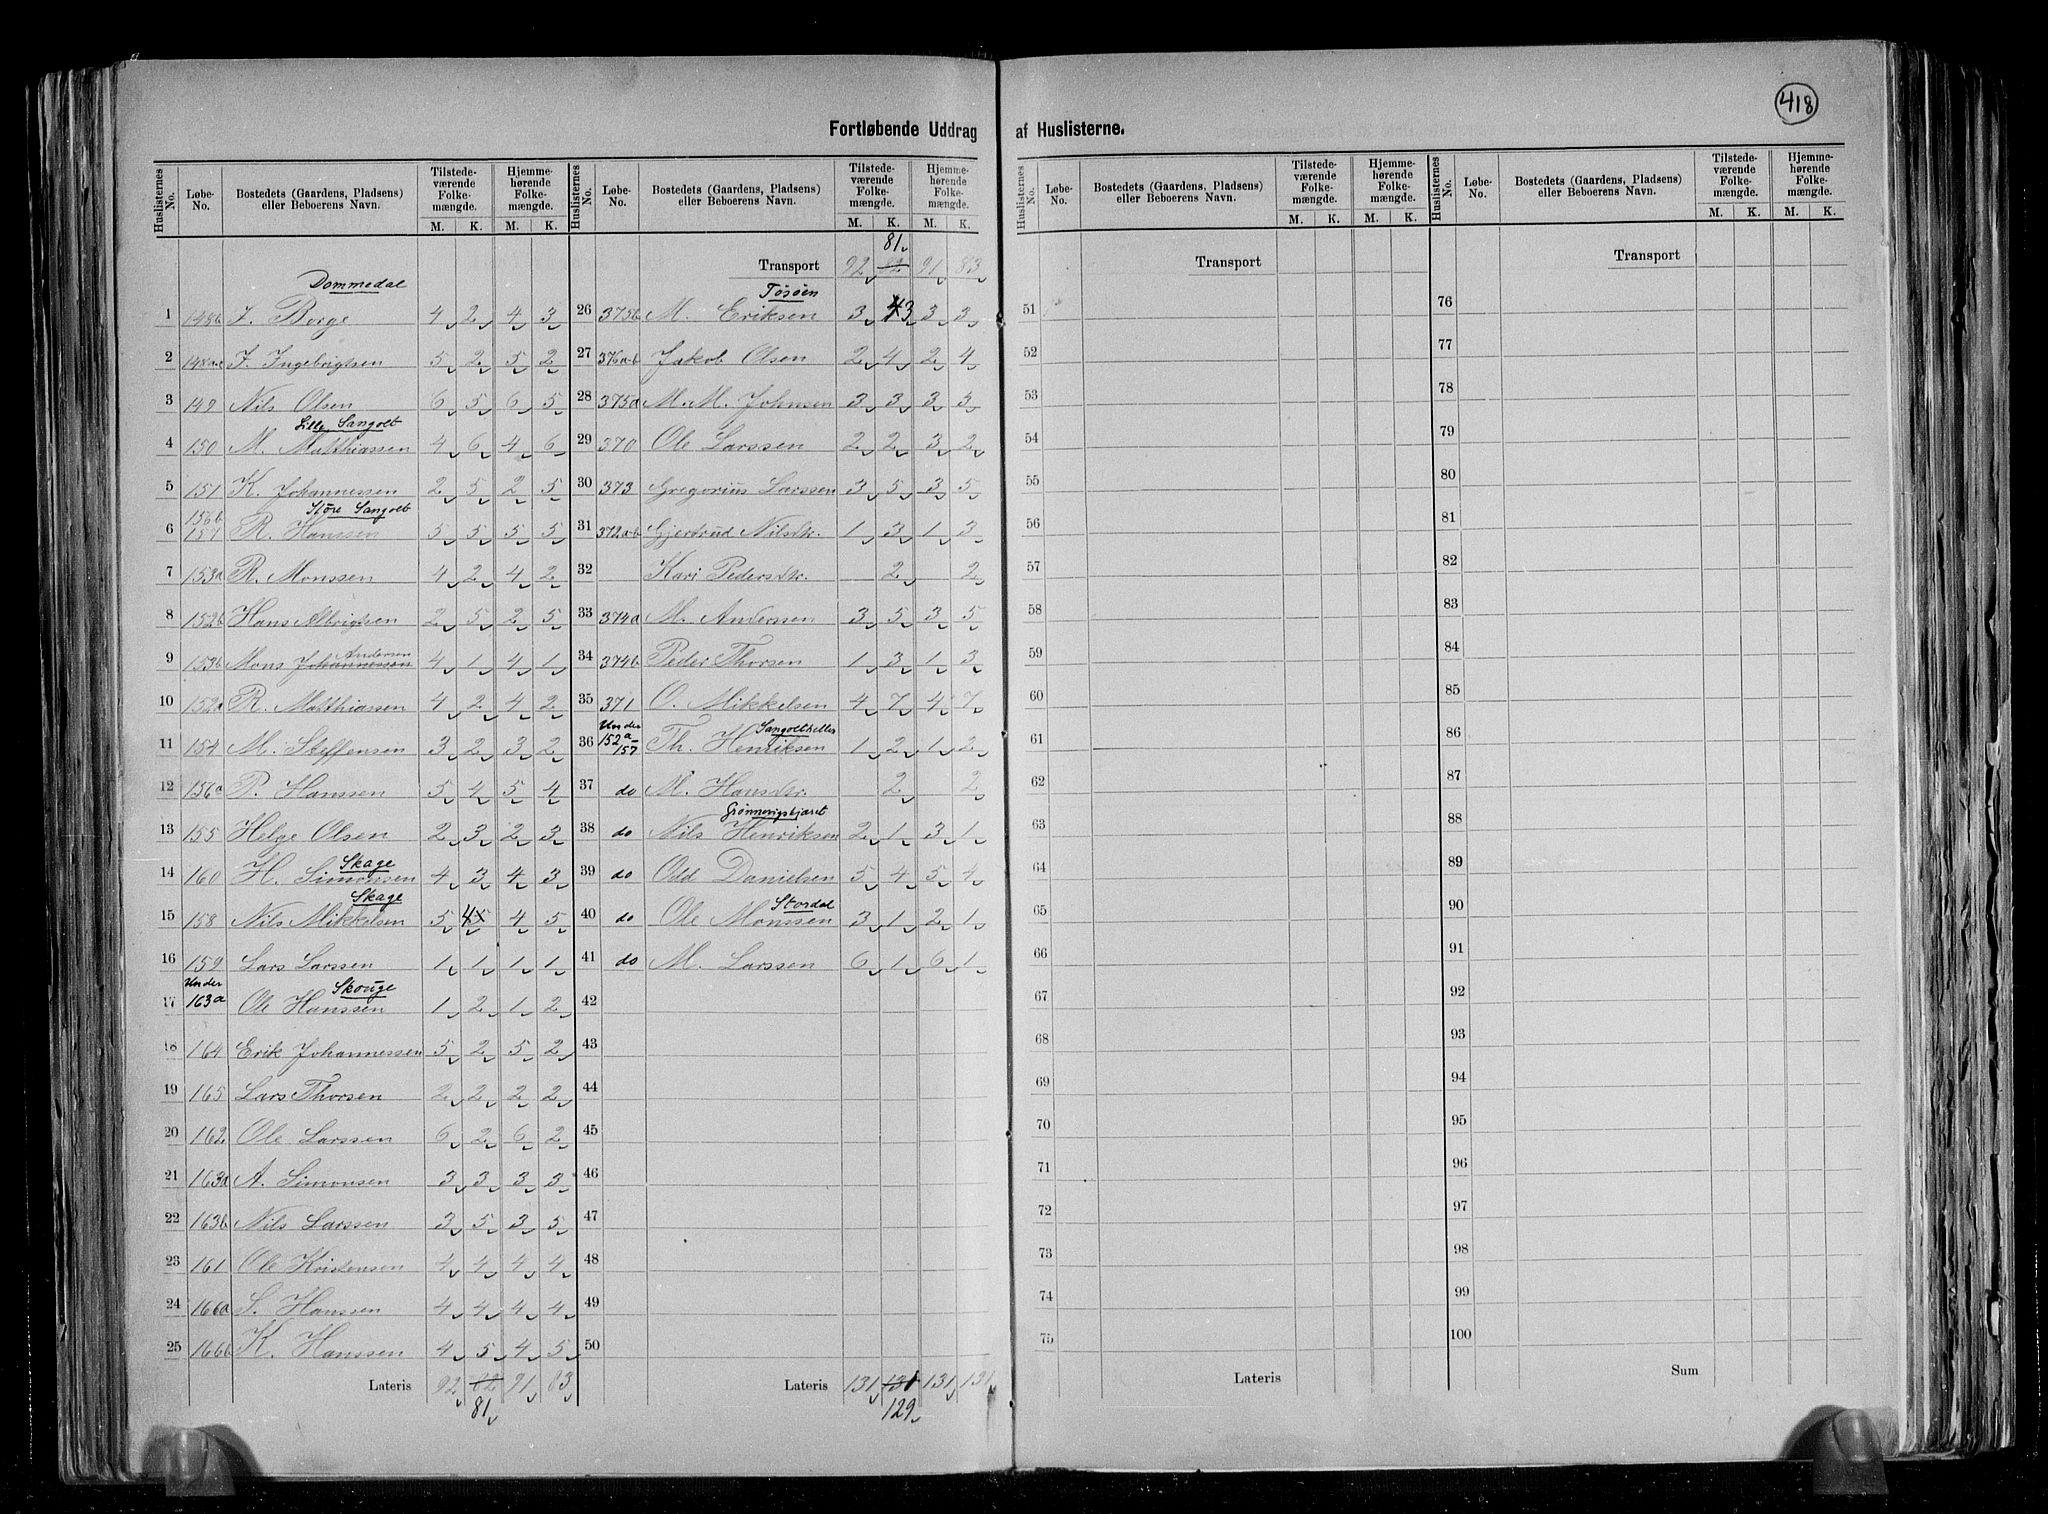 418
Fortløbende Uddrag af Huslisterne.
Huslisternes No. Løbe-No. Bostedets (Gaardens, Pladsens) eller Beboerens Navn. Tilstedeværende Folkemængde. M. K. Hjemmehørende Folkemængde. M. K.
Dommedal
1 148b J. Berge 4 2 4 3
2 I. Ingebrigtsen 5 2 5 2
3 149 Nils Olsen 6 5 6 5
Lille Sangolt
4 150 M. Matthiassen 4 6 4 6
5 151 K. Johannessen 2 5 2 5
Store Sangolt
6 156b 157 R. Hanssen 5 5 5 5
7 153a R. Monssen 4 2 4 2
8 152b Hans Albrigtsen 2 5 2 5
9 153b Mons Johannessen Andersen 4 1 4 1
10 152a R. Matthiassen 4 2 4 2
11 154 M. Steffensen 3 2 3 2
12 156a P. Hanssen 5 4 5 4
13 155 Helge Olsen 2 3 2 3
Skage
14 160 H. Simonsen 4 3 4 3
Skage
15 158 Nils Mikkelsen 5 4 5 4 5
16 159 Lars Larssen 1 1 1 1
Skouge
17 Under 163a Ole Hanssen 1 2 1 2
18 164 Erik Johannessen 5 2 5 2
19 165 Lars Thorsen 2 2 2 2
20 162 Ole Larssen 6 2 6 2
21 163a A. Simonsen 3 3 3 3
22 163b Nils Larssen 3 5 3 5
23 161 Ole Kristensen 4 4 4 4
24 166a S. Hanssen 4 4 4 4
25 166b K. Hanssen 4 5 4 5
Lateris 92 82 91 83
81
Huslisternes No. Løbe-No. Bostedets (Gaardens, Pladsens) eller Beboerens Navn. Tilstedeværende Folkemængde. M. K. Hjemmehørende Folkemængde. M. K.
81
Transport 92 82 91 83
Tøsøen
26 375b M. Eriksen 3 4 3 3 3
27 376a-b Jakob Olsen 2 4 2 4
28 375a M. M. Johnsen 3 3 3 3
29 370 Ole Larssen 2 2 3 2
30 373 Gregorius Larssen 3 5 3 5
31 372a-b Gjertrud Nilsdtr. 1 3 1 3
32 Kari Pedersdtr. 2 2
33 374a M. Anderssen 3 5 3 5
34 374b Peder Thorsen 1 3 1 3
35 371 O. Mikkelsen 4 7 4 7
36 Under 152a-157 Th. Henriksen 1 2 1 2
37 do M. Hansdtr. 2 2
38 do Nils Henriksen 2 1 3 1
39 do Odd Danielsen 5 4 5 4
Stordal
40 do Ole Monssen 3 1 2 1
41 do M. Larssen 6 1 6 1
42
43
44
45
46
47
48
49
50
Lateris 131 131 131 131
129
Huslisternes No. Løbe-No. Bostedets (Gaardens, Pladsens) eller Beboerens Navn. Tilstedeværende Folkemængde. M. K. Hjemmehørende Folkemængde. M. K.
Transport
51
52
53
54
55
56
57
58
59
60
61
62
63
64
65
66
67
68
69
70
71
72
73
74
75
Lateris
Huslisternes No. Løbe-No. Bostedets (Gaardens, Pladsens) eller Beboerens Navn. Tilstedeværende Folkemængde. M. K. Hjemmehørende Folkemængde. M. K.
Transport
76
77
78
79
80
81
82
83
84
85
86
87
88
89
90
91
92
93
94
95
96
97
98
99
100
Sum